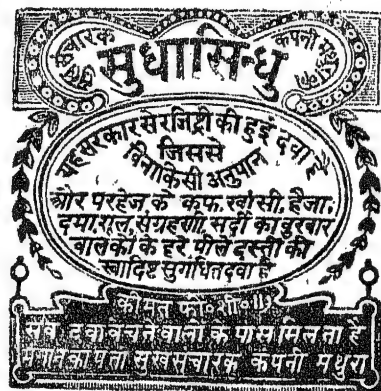 सुख संचारक कंपनी मथुरा का
सुधासिन्धु
यह सरकार से रजिट्री की हुई दवा है
जिससे
विना किसी अनुपान
और परहेज के कफ, खांसी, हैजा,
दमा, शूल, संग्रहणी, सर्दी का बुखार
बालकों के हरे पीले दस्तों की
स्वादिष्ट सुगंधित दवा है
कीमत फी॰ शी॰ ॥)
सब दवा बेचने वालों के पास मिलता है
मंगाने का पता सुख संचारक कंपनी मथुरा